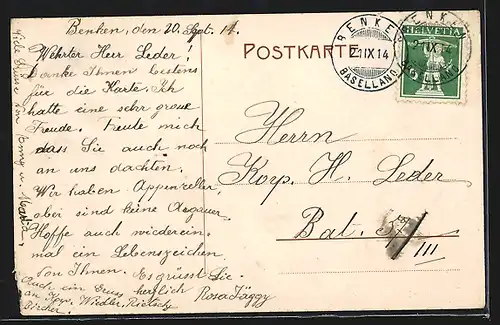 Benken, den 20. Sept. 14.
Wehrter Herr Leder!
Danke Ihnen bestens
für die Karte. Ich
hatte eine sehr grosse
Freude. Freute mich
dass Sie auch noch
an uns dachten.
Wir haben Appenzeller,
aber sind keine Argauer.
Hoffe auch wiederein-
mal ein Lebenszeichen
von Ihnen. Es grüsst Sie
herzlich
Rosa Jäggy
Auch ein Gruss
an Korp. Windler, Rietschy
Bircher.
Viele Grüsse von Emmy u. Maria
POSTKARTE
BENKEN
21 IX 14
BASELLAND
HELVETIA
BENKEN
21 IX 14
BASELLAND
Herrn
Korp. H. Leder
Bat.
III